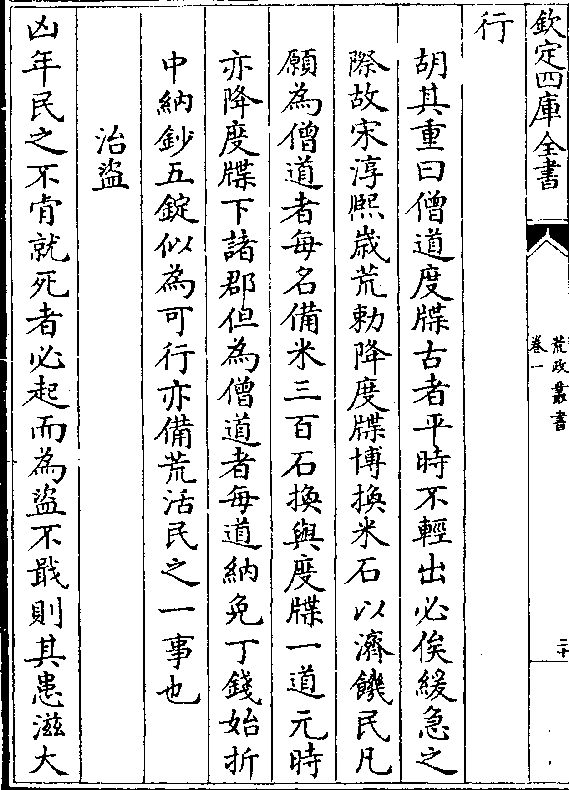 欽定四庫全書
荒政叢書
卷一
二十
行
胡其重曰僧道度牒古者平時不輕出必俟緩急之
際故宋淳熙歳荒勅降度牒博換米石以濟饑民凡
願為僧道者每名備米三百石換與度牒一道元時
亦降度牒下諸郡但為僧道者每道納免丁錢始折
中納鈔五錠似為可行亦備荒活民之一事也
治盜
凶年民之不肯就死者必起而為盜不戢則其患滋大